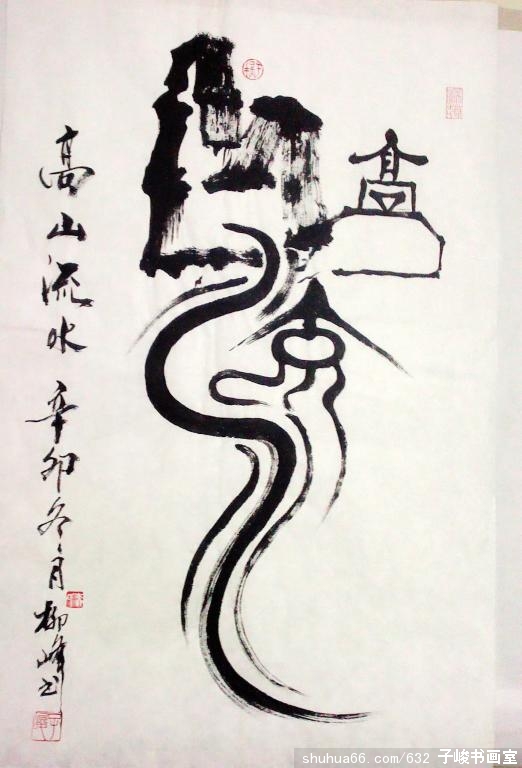 高山流水
高山流水 辛卯冬月 柳峰书
shuhua66.com/632 子峻书画室